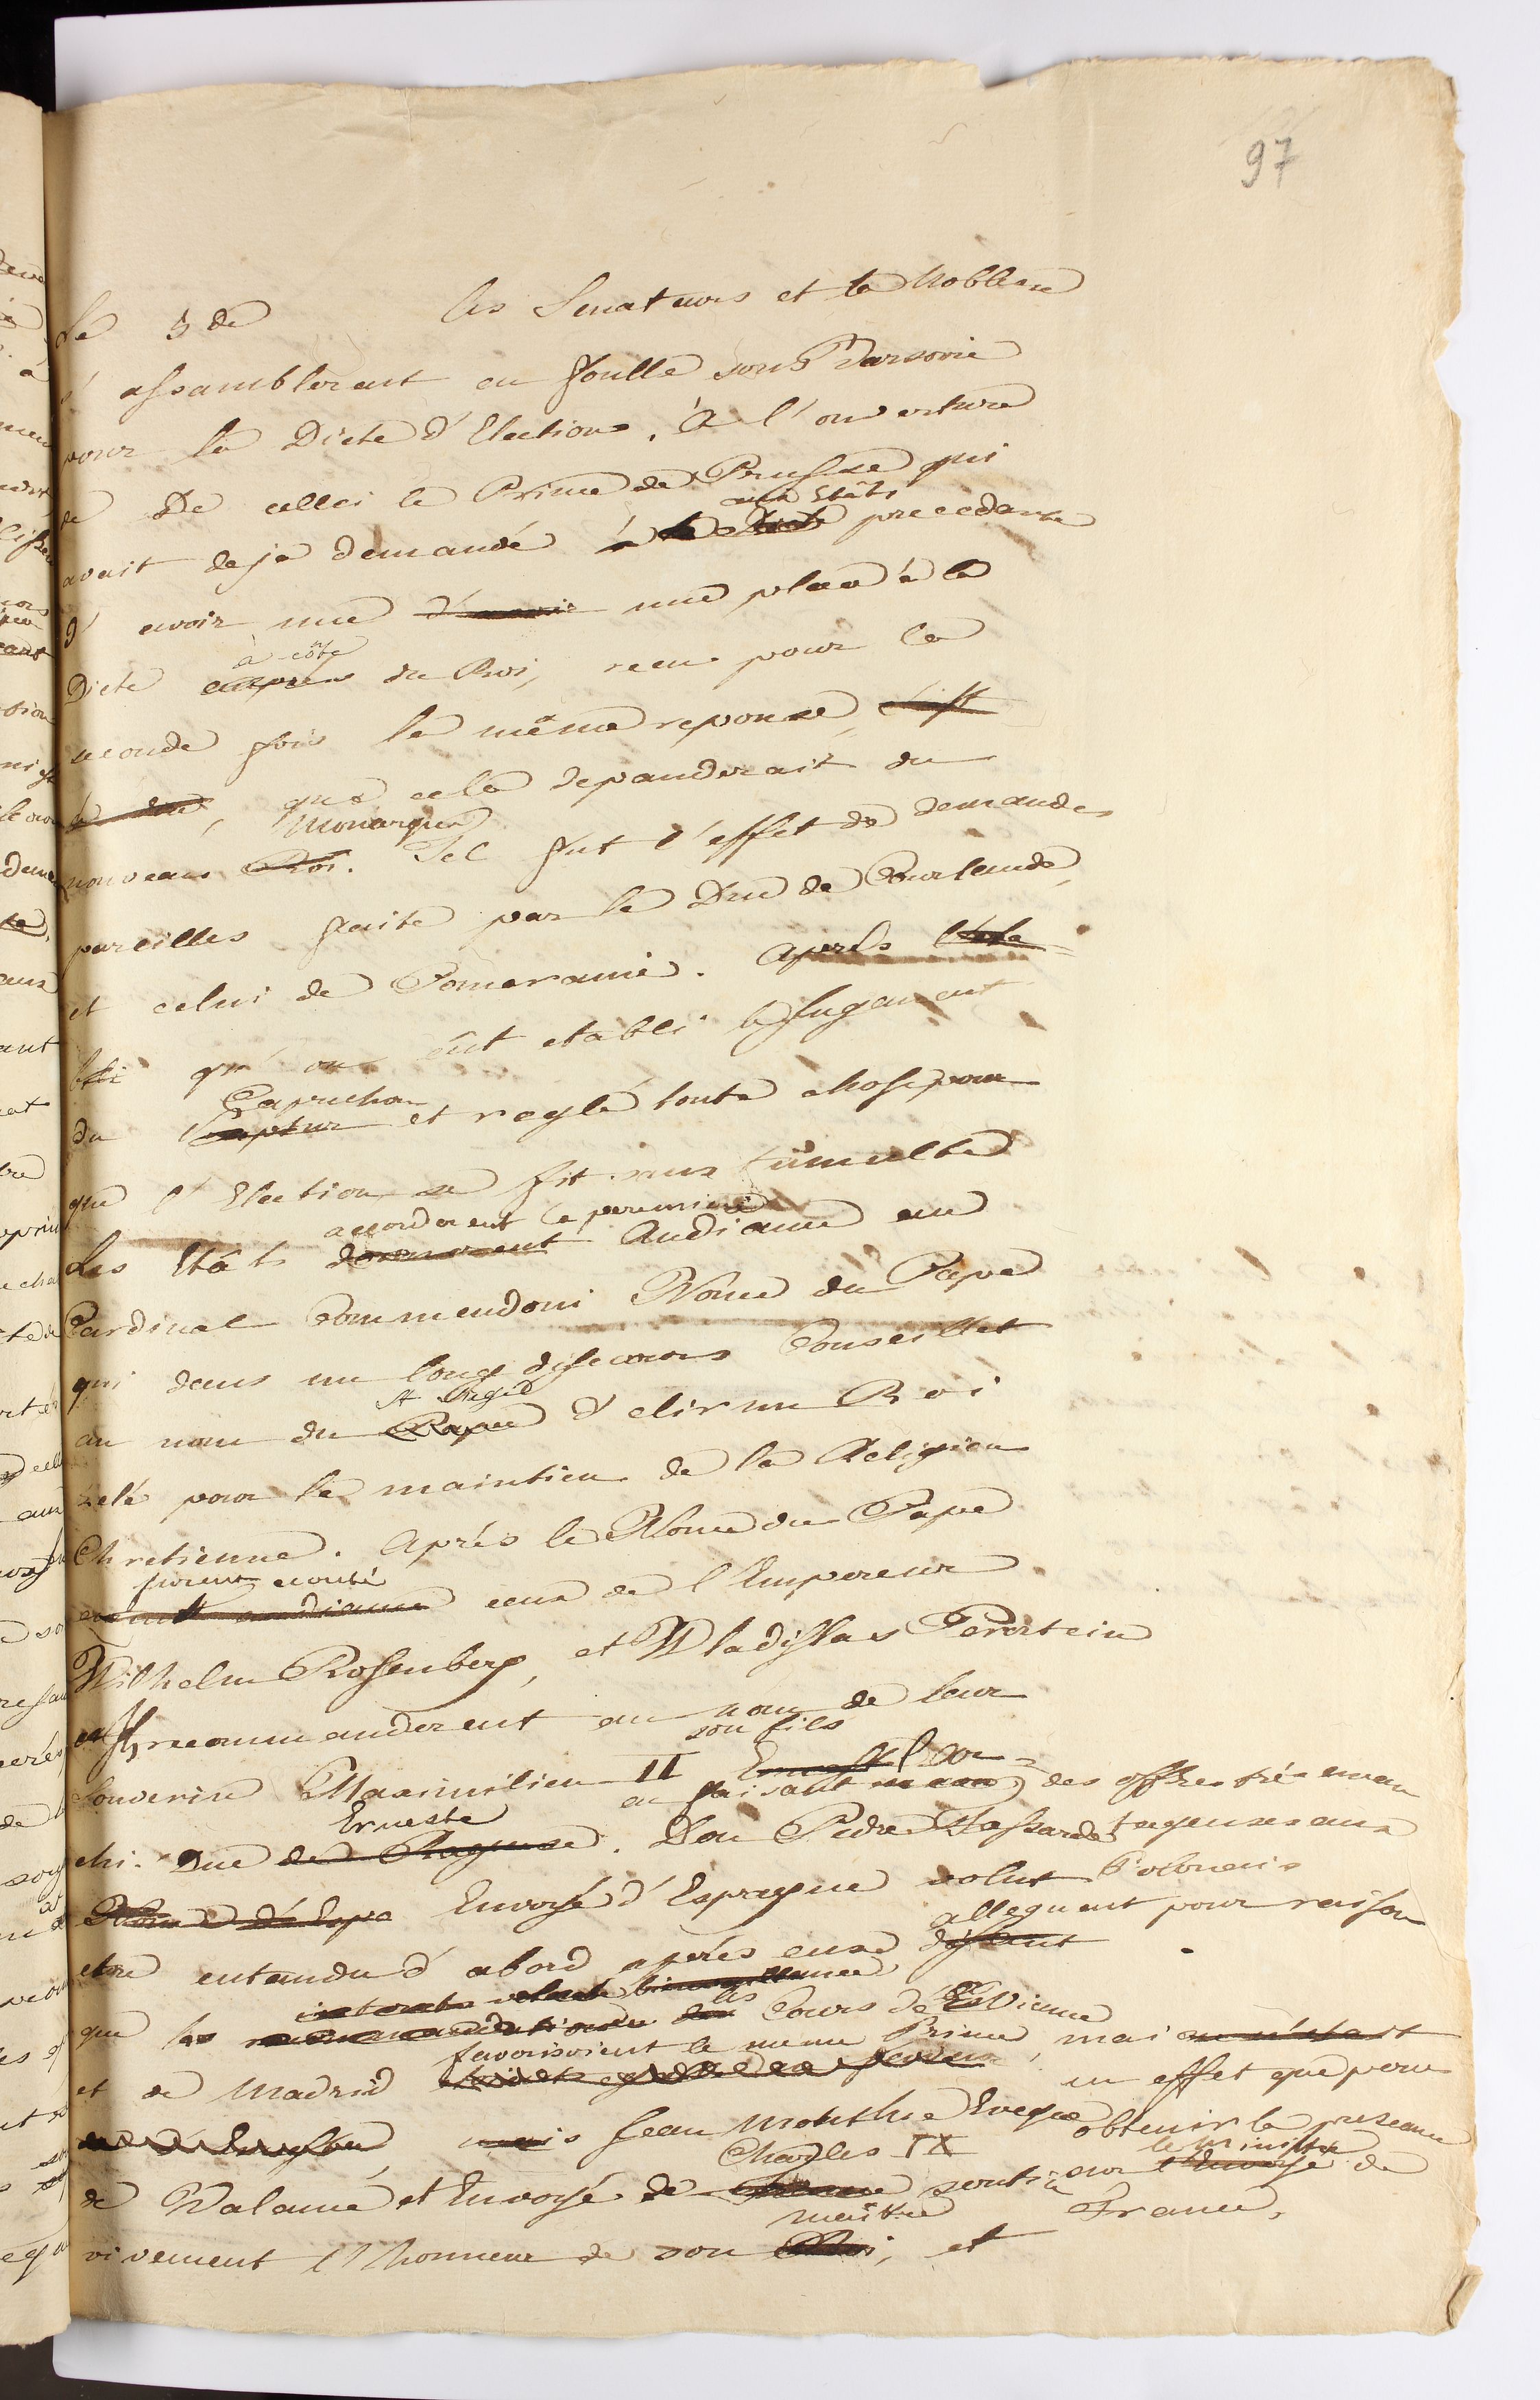 97
Le 5 de les Senateurs et la Noblesse
s'assamblerent en foulle sous Varsovie
pour la Diete d'Election. à l'ouverture
de De celleci le Prince de Prusse qui
aux Etâts
avait deja demandé à la Diete precedante
d'avoir une d'avoir une place à la
à côté
Diete auprès du Roi, recu pour la
seconde fois la même reponse, c'est
à dire, que cela depanderait du
Monarque
nouveau Roi. Tel fut l'effet de demandes
pareilles faite par le Duc de Courlande,
et celui de Pomeranie. après
qu'on eut etabli le Jugement
Capuchon
du Captur et reglé toute chose pour
que l'Election se fit sans tumulte
accorderent la premiere
Les Etâts donnerent Audiance au
Cardinal Commendoni Nonce du Pape
qui dans un long discours Conseillet
St Siege
au nom du Pape d'elir un Roi
zelé pour le maintien de la Religion
Chretienne. Après le Nonce du Pape
furent ecouté
eurent audiance ceux de l'Empereur
Wilhelm Rosenberg, et Wladislas Perestein
recommanderent au nom de leur
son fils
Souverin Maximilien II Ernest l'Ar=
en faisant des offres très avan
Erneste
chi. Duc de Raguse. Don Pedre Fassardo tageuses aux
Envoyé d'Espagne volut Polonais
alleguent pour raison
etre entandu d'abord après eux disant
que les les Cours de Vienne
favorisoient le meme Prince, mai ce n'etait
et de Madrid en effet que pour
mais Jean Monthue Eveque obtenir la preseance
Charles IX le Ministre
de Valance et Envoyé de France soutin sur l'Envoyé de
maître France,
vivement l'honneur de son Roi, et